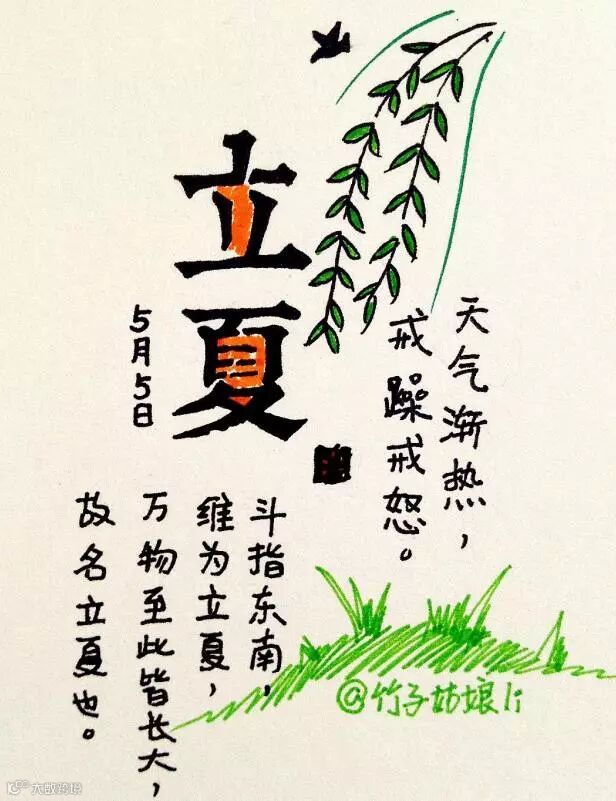 立夏
5月5日
天气渐热，
戒躁戒怒。
斗指东南，
维为立夏，
万物至此皆长大，
故名立夏也。
@竹子姑娘li
大数跨境